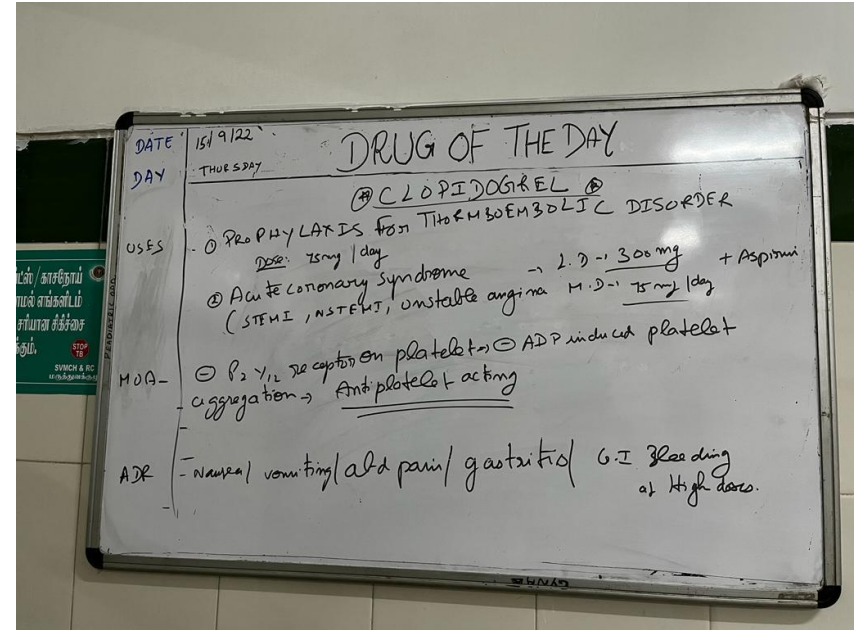 DATE 15/9/22 DRUG OF THE DAY
DAY THURSDAY
CLOPIDOGREL
USES - ① PROPHYLAXIS For THORMBOEMBOLIC DISORDER
Dose: 75mg / day
② Acute coronary syndrome → L.D → 300 mg + Aspirin
(STEMI, NSTEMI, Unstable angina M.D → 75 mg / day
MOA - ⊖ P2Y12 receptor on platelet → ⊖ ADP induced platelet
aggregation → Antiplatelet acting
ADR - Nausea / vomiting / abd pain / gastritis / G.I Bleeding
at High doses.
PAEDIATRIC
காசநோய்
எங்களிடம்
சரியான சிகிச்சை
STOP TB
SVMCH & RC
GYNAE